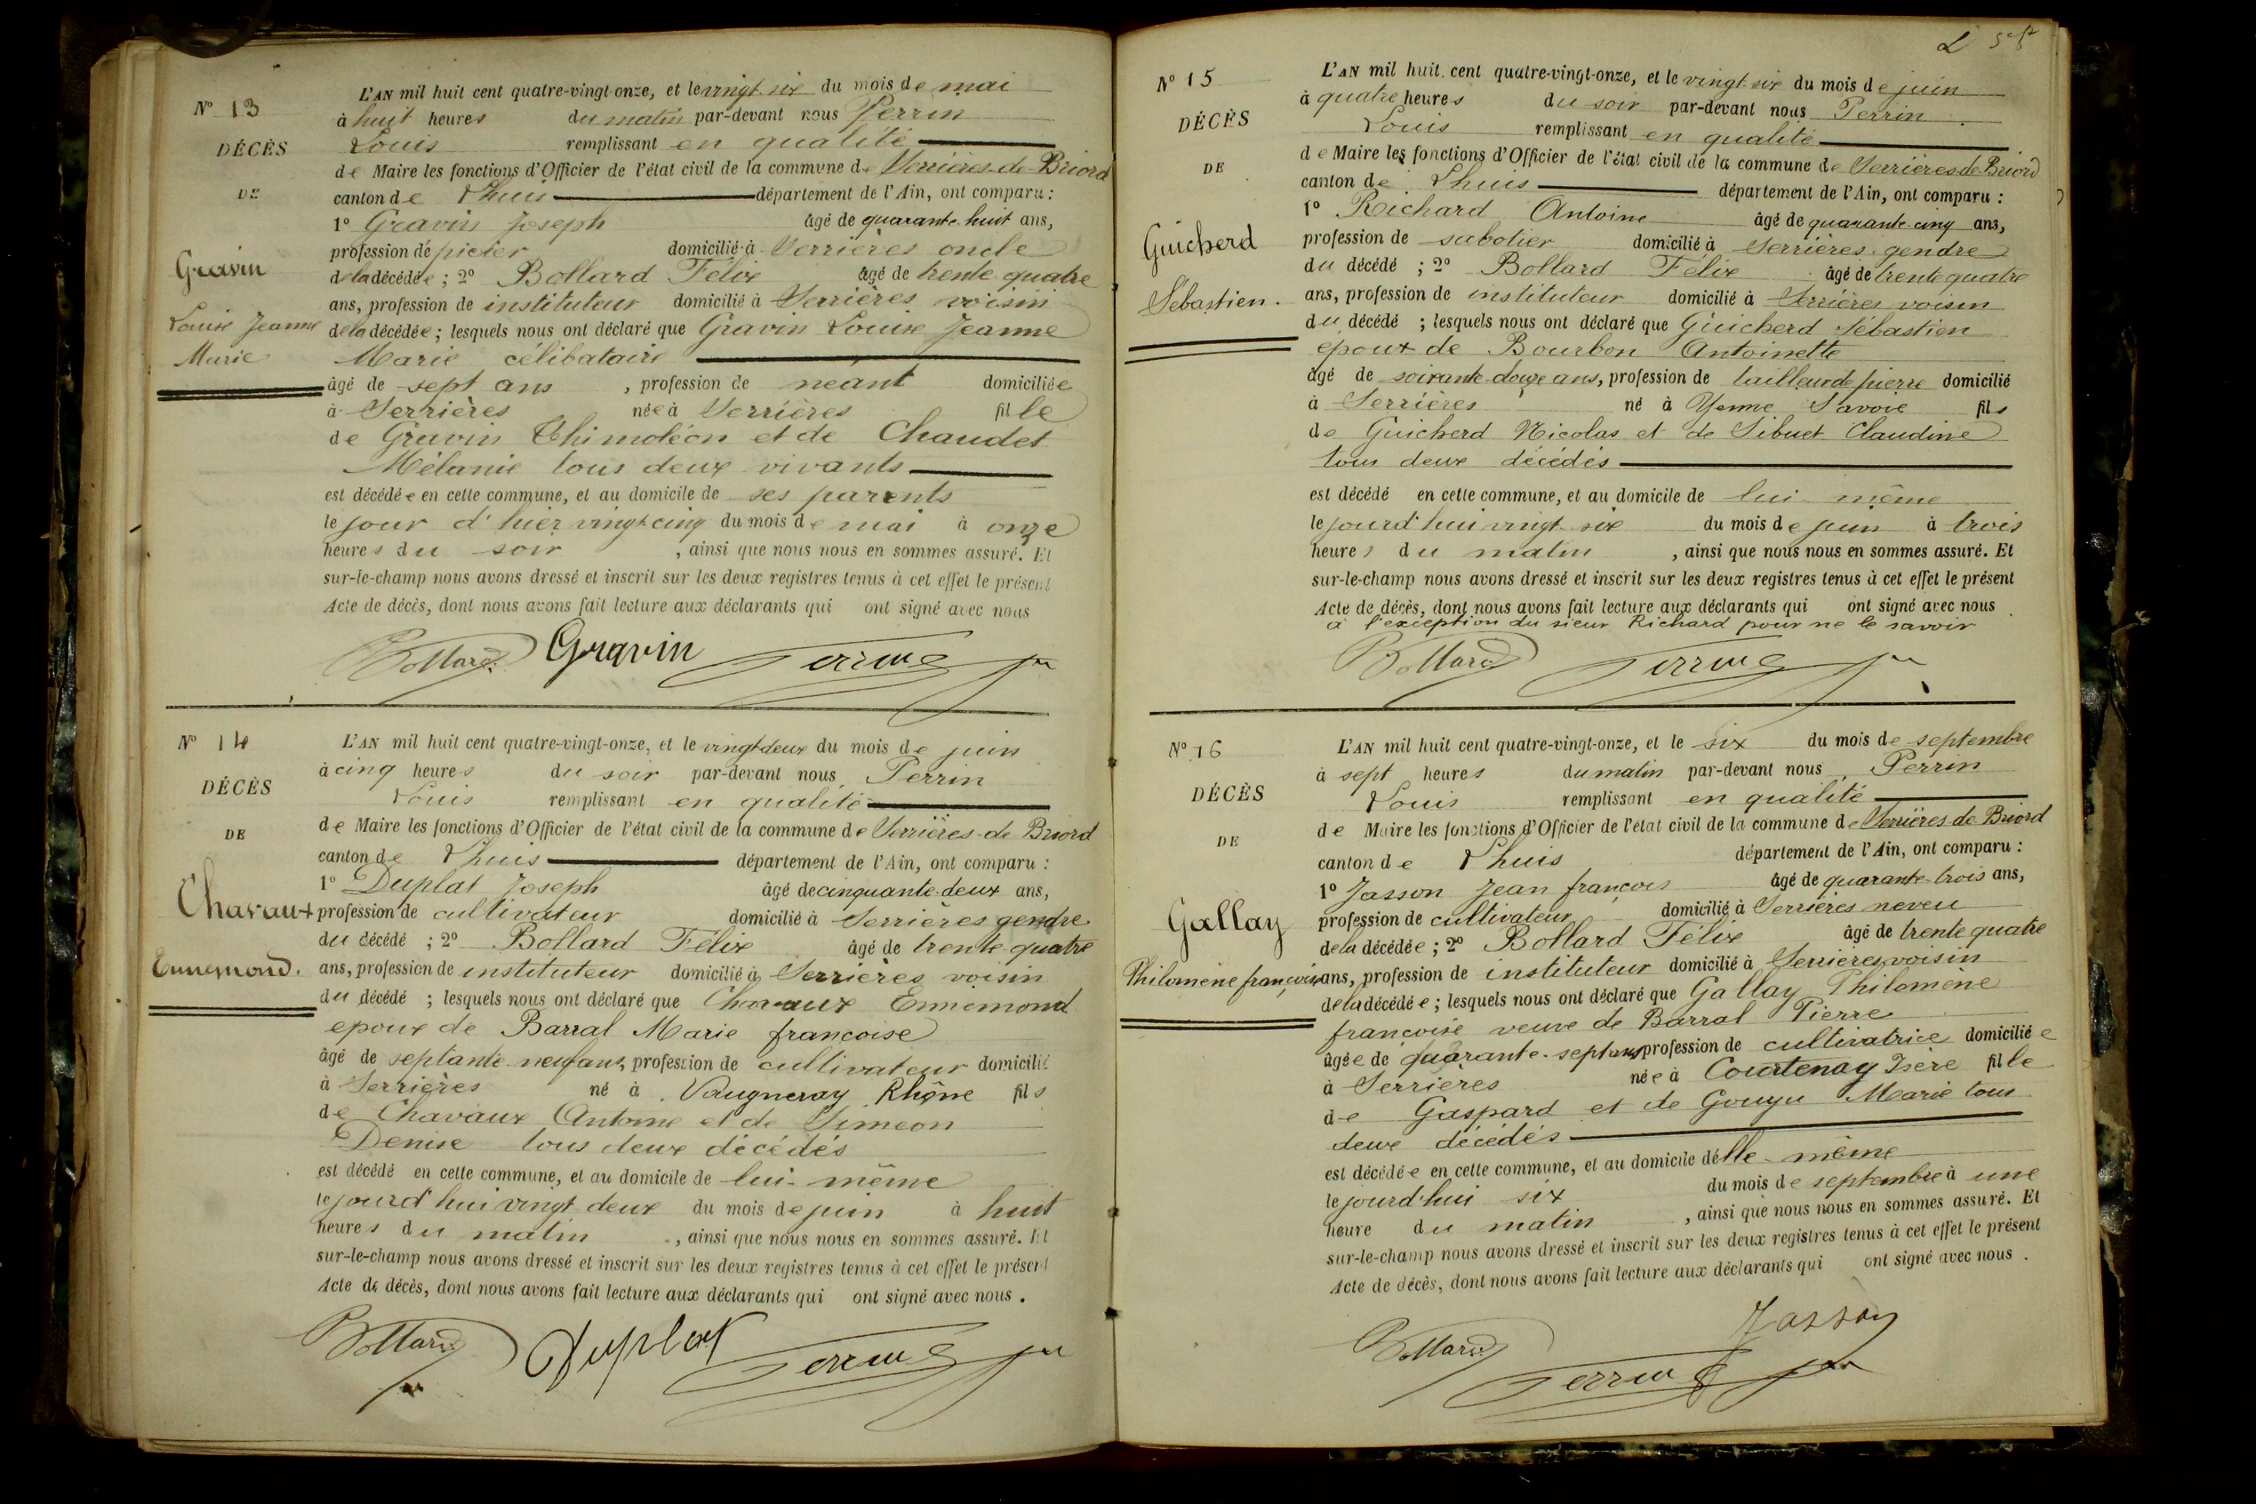 N° 13
DÉCÈS
DE
Gravin
Louise Jeanne
Marie
L'AN mil huit cent quatre-vingt-onze, et le vingt six du mois de mai
à huit heures du matin par-devant nous Perrin
Louis remplissant en qualité
de Maire les fonctions d'Officier de l'état civil de la commune de Serrières-de-Briord
canton de Lhuis département de l'Ain, ont comparu :
1° Gravin Joseph âgé de quarante-huit ans,
profession de domicilié à Serrières oncle
de la décédée ; 2° Bollard Félix âgé de trente quatre
ans, profession de instituteur domicilié à Serrières voisin
de la décédée ; lesquels nous ont déclaré que Gravin Louise Jeanne
Marie célibataire
âgé de sept ans , profession de néant domiciliée
à Serrières née à Serrières fille
de Gravin Thimoléon et de Chaudet
Mélanie tous deux vivants
est décédée en cette commune, et au domicile de ses parents
le jour d'hier vingt-cinq du mois de mai à onze
heures du soir , ainsi que nous nous en sommes assuré. Et
sur-le-champ nous avons dressé et inscrit sur les deux registres tenus à cet effet le présent
Acte de décès, dont nous avons fait lecture aux déclarants qui ont signé avec nous
Bollard Gravin Perrin
N° 14
DÉCÈS
DE
Chavaux
Ennemond.
L'AN mil huit cent quatre-vingt-onze, et le vingt-deux du mois de juin
à cinq heures du soir par-devant nous Perrin
Louis remplissant en qualité
de Maire les fonctions d'Officier de l'état civil de la commune de Serrières-de Briord
canton de Lhuis département de l'Ain, ont comparu :
1° Duplat Joseph âgé de cinquante-deux ans,
profession de cultivateur domicilié à Serrières gendre
du décédé ; 2° Bollard Félix âgé de trente-quatre
ans, profession de instituteur domicilié à Serrières voisin
du décédé ; lesquels nous ont déclaré que Chavaux Ennemond
epoux de Barral Marie françoise
âgé de septante-neuf ans, profession de cultivateur domicilié
à Serrières né à Vaugneray Rhône fils
de Chavaux Antoine et de Simeon
Denise tous deux décédés
est décédé en cette commune, et au domicile de lui-même
le jourd'hui vingt deux du mois de juin à huit
heures du matin , ainsi que nous nous en sommes assuré. Et
sur-le-champ nous avons dressé et inscrit sur les deux registres tenus à cet effet le présent
Acte de décès, dont nous avons fait lecture aux déclarants qui ont signé avec nous.
Bollard Duplat Perrin
N° 15
DÉCÈS
DE
Guicherd
Sébastien.
L'AN mil huit cent quatre-vingt-onze, et le vingt-six du mois de juin
à quatre heures du soir par-devant nous Perrin
Louis remplissant en qualité
de Maire les fonctions d'Officier de l'état civil de la commune de Serrières de Briord
canton de Lhuis département de l'Ain, ont comparu :
1° Richard Antoine âgé de quarante-cinq ans,
profession de sabotier domicilié à Serrières gendre
du décédé ; 2° Bollard Félix âgé de trente quatre
ans, profession de instituteur domicilié à Serrières voisin
du décédé ; lesquels nous ont déclaré que Guicherd Sébastien
epoux de Bourbon Antoinette
âgé de soixante-douze ans, profession de tailleur de pierre domicilié
à Serrières né à Yenne Savoie fils
de Guicherd Nicolas et de Sibuet Claudine
tous deux décédés
est décédé en cette commune, et au domicile de lui-même
le jourd'hui vingt-six du mois de juin à trois
heures du matin , ainsi que nous nous en sommes assuré. Et
sur-le-champ nous avons dressé et inscrit sur les deux registres tenus à cet effet le présent
Acte de décès, dont nous avons fait lecture aux déclarants qui ont signé avec nous
à l'exception du sieur Richard pour ne le savoir
Bollard Perrin
N° 16
DÉCÈS
DE
Gallay
Philomène françoise
L'AN mil huit cent quatre-vingt-onze, et le six du mois de septembre
à sept heures du matin par-devant nous Perrin
Louis remplissant en qualité
de Maire les fonctions d'Officier de l'état civil de la commune de Serrières de Briord
canton de Lhuis département de l'Ain, ont comparu :
1° Jasson Jean françois âgé de quarante-trois ans,
profession de cultivateur domicilié à Serrières neveu
de la décédée ; 2° Bollard Félix âgé de trente quatre
ans, profession de instituteur domicilié à Serrières voisin
de la décédée ; lesquels nous ont déclaré que Gallay Philomène
françoise veuve de Barral Pierre
âgée de quarante-sept ans profession de cultivatrice domiciliée
à Serrières née à Courtenay Isère fille
de Gaspard et de Gouyu Marie tous
deux décédés
est décédée en cette commune, et au domicile d'elle-même
le jourd'hui six du mois de septembre à une
heure du matin , ainsi que nous nous en sommes assuré. Et
sur-le-champ nous avons dressé et inscrit sur les deux registres tenus à cet effet le présent
Acte de décès, dont nous avons fait lecture aux déclarants qui ont signé avec nous.
Jasson
Bollard Perrin